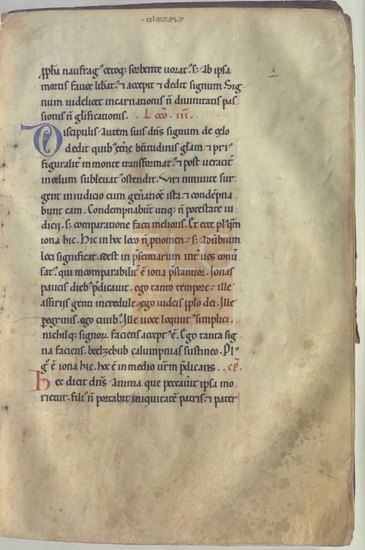 ppħa naufrag᷒ cetoq; sorbente uorat᷒. s; ab ipsa
mortis fauce libat᷒. & accepit & dedit signum. Sig
num uidelicet incarnationis ñ diuinitatis. pas
sionis ñ glificationis. Lcco. iii.
Discipulis autem suis dñs signum de celo
dedit. quib᷒ et̃ne b̃titudinis glam & pri
figuralit̃ in monte transformat᷒. & post ueracit̃
in celum subleuat᷒ ostendit. Viri niniuite sur
gent in iudicio cum gen̄atione ista. & condēpna
bunt eam. Condempnabūt utiq; ñ potestate iu
dicii. s; comparatione facti melioris. Et ecce pl᷒ qm̄
iona hic. Hic in hoc loco ñ pnomen. s; aduerbium
loci significat. idest in psentiarum int̃ uos conũ
sat᷒. qui incomparabilit̃ ē iona prestantior. Ionas
paucis dieb᷒ pdicauit. ego tanto tempore. ille
assirijs genti incredule. ego iudeis pplo dei. ille
pegrinis. ego ciuib᷒. Ille uoce loquit᷒ simplici.
nichilq; signoꝝ faciens accept᷒ ē. Ego tanta sig
na faciens. beelzebub calumpnias sustineo. Pl᷒
g᷒ ē iona hic. hoc ē in medio ur̄m pdicans. cp̄.
Hec dicit dñs. Anima que peccauit ipsa mo
rietur. fili᷒ ñ portabit iniquitatē patris. & pater